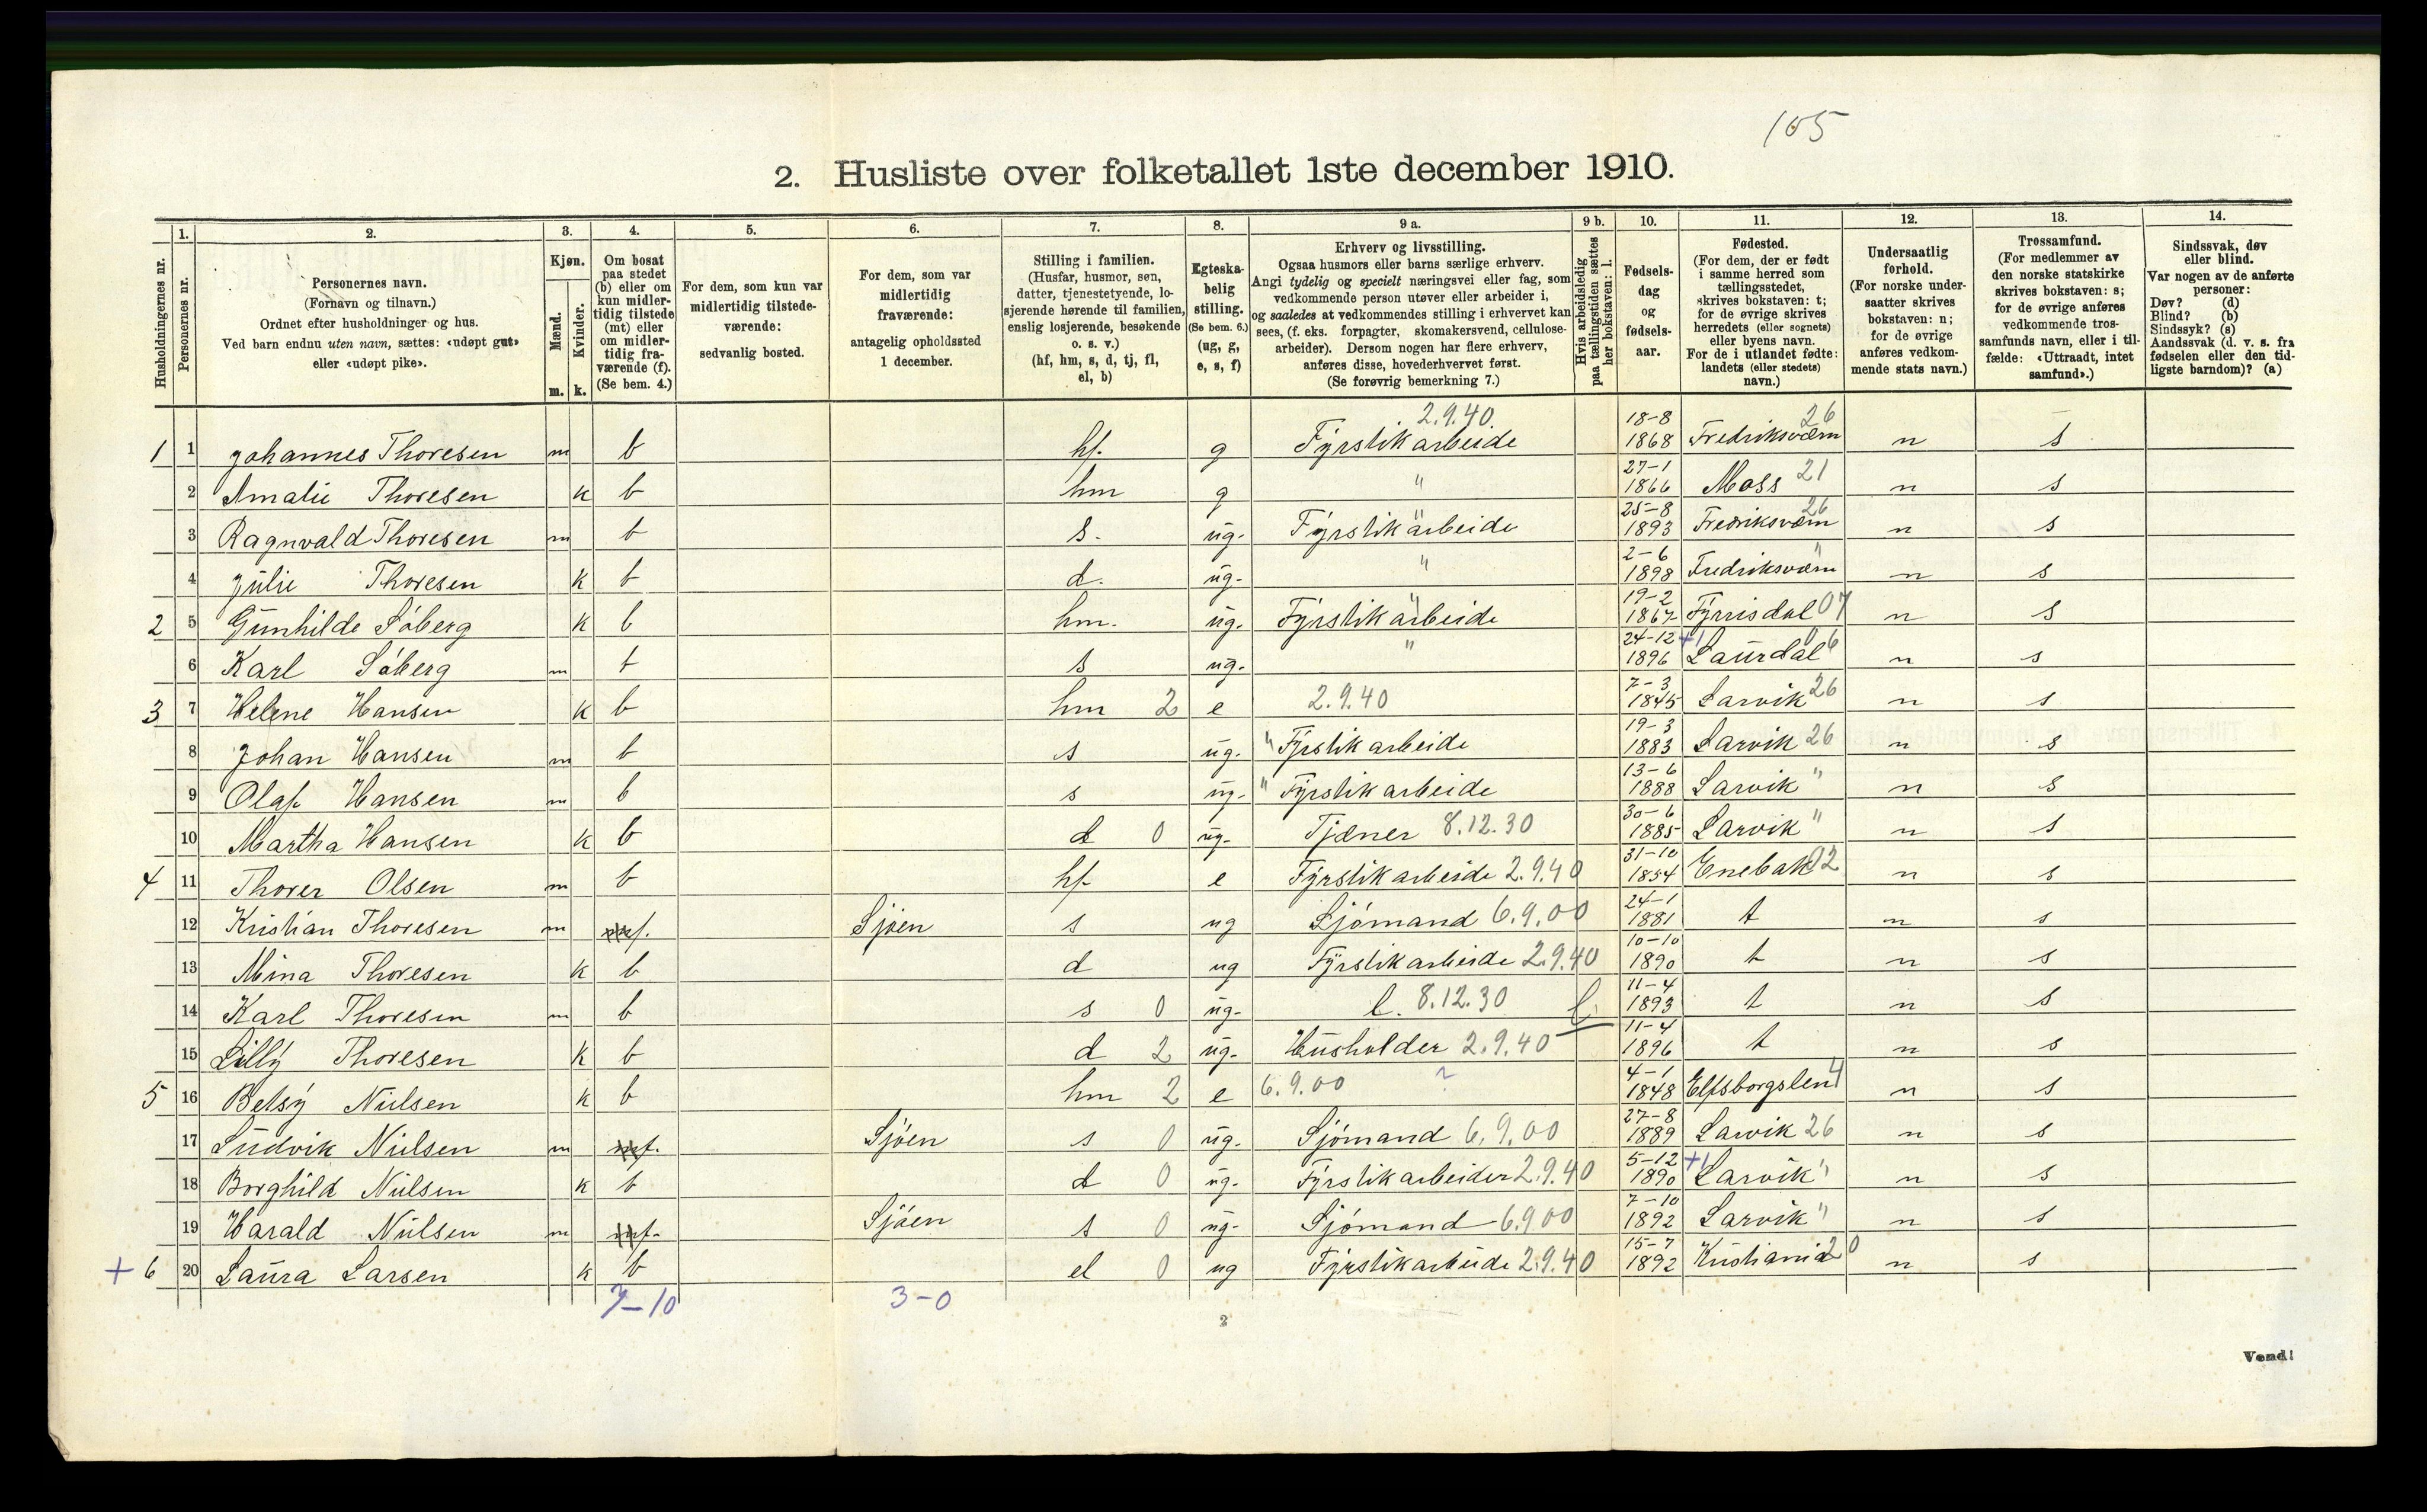 105
2. Husliste over folketallet 1ste december 1910.
Husholdningernes nr.
1.
Personernes nr.
2.
Personernes navn.
(Fornavn og tilnavn.)
Ordnet efter husholdninger og hus.
Ved barn endnu uten navn, sættes: «udøpt gut»
eller «udøpt pike».
3.
Kjøn.
Mænd.
Kvinder.
m. k.
4.
Om bosat
paa stedet
(b) eller om
kun midler-
tidig tilstede
(mt) eller
om midler-
tidig fra-
værende (f).
(Se bem. 4.)
5.
For dem, som kun var
midlertidig tilstede-
værende:
sedvanlig bosted.
6.
For dem, som var
midlertidig
fraværende:
antagelig opholdssted
1 december.
7.
Stilling i familien.
(Husfar, husmor, søn,
datter, tjenestetyende, lo-
sjerende hørende til familien,
enslig losjerende, besøkende
o. s. v.)
(hf, hm, s, d, tj, fl,
el, b)
8.
Egteska-
belig
stilling.
(Se bem. 6.)
(ug, g,
e, s, f)
9 a.
Erhverv og livsstilling.
Ogsaa husmors eller barns særlige erhverv.
Angi tydelig og specielt næringsvei eller fag, som
vedkommende person utøver eller arbeider i,
og saaledes at vedkommendes stilling i erhvervet kan
sees, (f. eks. forpagter, skomakersvend, cellulose-
arbeider). Dersom nogen har flere erhverv,
anføres disse, hovederhvervet først.
(Se forøvrig bemerkning 7.)
9 b.
Hvis arbeidsledig
paa tællingstiden sættes
her bokstaven: l.
10.
Fødsels-
dag
og
fødsels-
aar.
11.
Fødested.
(For dem, der er født
i samme herred som
tællingsstedet,
skrives bokstaven: t;
for de øvrige skrives
herredets (eller sognets)
eller byens navn.
For de i utlandet fødte:
landets (eller stedets)
navn.)
12.
Undersaatlig
forhold.
(For norske under-
saatter skrives
bokstaven: n;
for de øvrige
anføres vedkom-
mende stats navn.)
13.
Trossamfund.
(For medlemmer av
den norske statskirke
skrives bokstaven: s;
for de øvrige anføres
vedkommende tros-
samfunds navn, eller i til-
fælde: «Uttraadt, intet
samfund».)
14.
Sindssvak, døv
eller blind.
Var nogen av de anførte
personer:
Døv? (d)
Blind? (b)
Sindssyk? (s)
Aandssvak (d. v. s. fra
fødselen eller den tid-
ligste barndom)? (a)
1 1 Johannes Thoresen m b hf. g Fyrstikarbeide 2.9.40. 18-8 1868 Fredriksværn 26 n s
2 Amalie Thoresen k b hm g " 27-1 1866 Moss 21 n s
3 Ragnvald Thoresen m b s. ug. Fyrstikarbeide " 25-8 1893 Fredriksværn 26 n s
4 Julie Thoresen k b d. ug. " 2-6 1898 Fredriksværn " n s
2 5 Gunhilde Söberg k b hm. ug. Fyrstikarbeide " 19-2 1867 Fyrrisdal 07 n s
6 Karl Söberg m b s ug. " 24-12 1896 +1 Laurdal 6 n s
3 7 Helene Hansen k b hm 2 e 2.9.40 7-3 1845 Larvik 26 n s
8 Johan Hansen m b s ug. " Fyrstikarbeide 19-3 1883 Larvik 26 n s
9 Olaf Hansen m b s ug. " Fyrstikarbeide 13-6 1888 Larvik " n s
10 Martha Hansen k b d 0 ug. Tjæner 8.12.30 30-6 1885 Larvik " n s
4 11 Thorer Olsen m b hf. e Fyrstikarbeide 2.9.40 31-10 1854 Enebak 02 n s
12 Kristian Thoresen m f. Sjöen s ug Sjömand 6.9.00 24-1 1881 t n s
13 Mina Thoresen k b d ug Fyrstikarbeide 2.9.40 10-10 1890 t n s
14 Karl Thoresen m b s 0 ug. l. 8.12.30 l 11-4 1893 t n s
15 Lilly Thoresen k b d 2 ug. Husholder 2.9.40 11-4 1896 t n s
5 16 Betsy Nilsen k b hm 2 e 6.9.00 ? 4-1 1848 Elfsborgslen 4 n s
17 Ludvik Nilsen m f. Sjöen s 0 ug. Sjömand 6.9.00 27-8 1889 Larvik 26 n s
18 Borghild Nilsen k b d 0 ug. Fyrstikarbeider 2.9.40 5-12 1890 +1 Larvik " n s
19 Harald Nilsen m f. Sjöen s 0 ug. Sjömand 6.9.00 7-10 1892 Larvik " n s
+ 6 20 Laura Larsen k b el 0 ug Fyrstikarbeide 2.9.40 15-7 1892 Kristiania 20 n s
7-10 3-0
2
Vend!